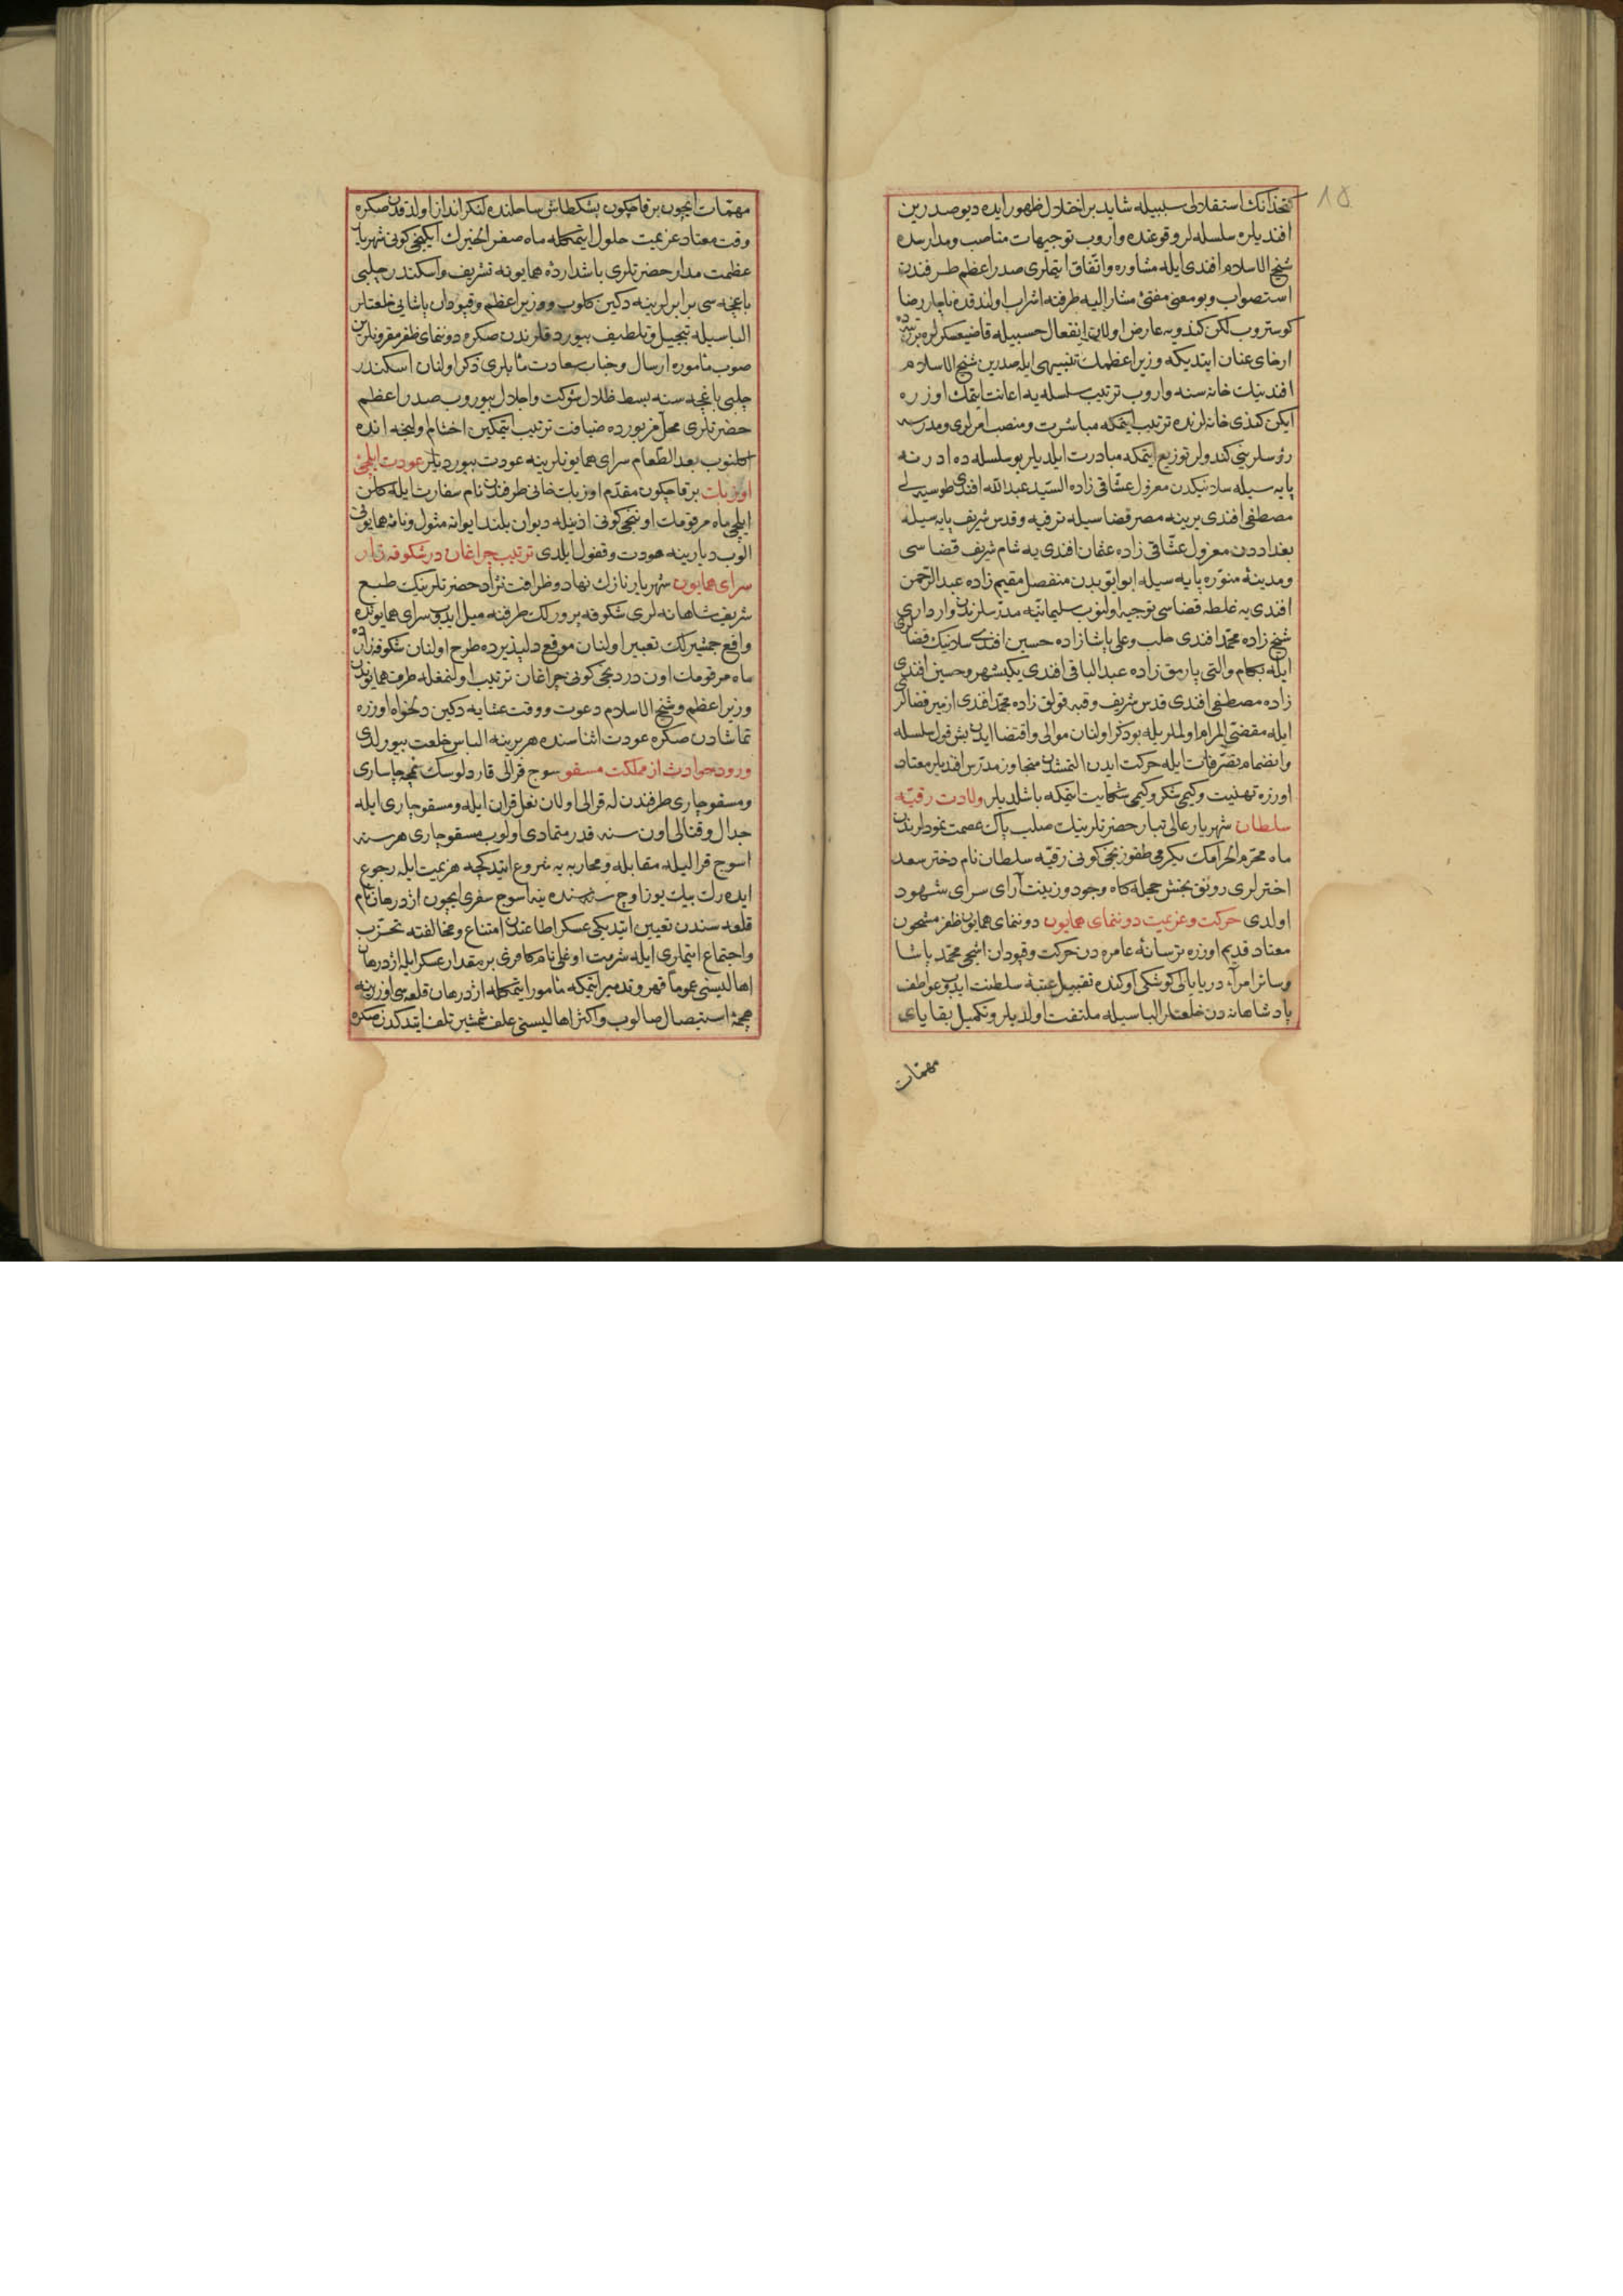 ۱۵
كتخدانك استقلالى سببيله شايد بر اختلال ظهور ايده ديو صدرين
افنديلره سلسله لر وقوعنده واروب توجيهات مناصب ومدارسده
شيخ الاسلام افندى ايله مشاوره واتفاق ايتملرى صدر اعظم طرفندن
استصواب وبو معنى مفتئ مشار اليه طرفنه اشراب اولندقده ناچار رضا
كوستروب لكن كندويه عارض اولان انفعال حسبيله قاضيعسكرلره ترتيبده
ارخاى عنان ايتديكه وزير اعظمك تنبيهى ايله صدرين شيخ الاسلام
افندينك خانه سنه واروب ترتيب سلسله يه اعانت ايتمك اوزره
ايكن كندى خانه لرنده ترتيب ايتمكه مباشرت ومنصب امرلرى ومدرسه
رؤسلرينى كندولر توزيع ايتمكه مبادرت ايلديلر بو سلسله ده ادرنه
پايه سيله سلانيكدن معزول عشاقى زاده السيد عبدالله افندى طوسيه لى
مصطفى افندى يرينه مصر قضاسيله ترفيه وقدس شريف پايه سيله
بغداددن معزول عشاقى زاده عثمان افندى يه شام شريف قضاسى
ومدينهٔ منوره پايه سيله ابوايوبدن منفصل مقيم زاده عبدالرحمن
افندى يه غلطه قضاسى توجيه اولنوب سليمانيه مدرسلرندن وارداری
شيخ زاده محمد افندى حلب وعلى پاشازاده حسين افندى سلانيك قضالرى
ايله بكام والتى پارمق زاده عبدالباقى افندى يكيشهر وحسين افندى
زاده مصطفى افندى قدس شريف وقبه قولاق زاده محمد افندى ازمير قضالرى
ايله مقضئ المرام اولملريله بو ذكر اولنان موالى واقتضا ايدن بش قول سلسله
وانضمام تصرفات ايله حركت ايدن التمشدن متجاوز مدرس افنديلر معتاد
اوزره تهنيت وكيمى شكر وكيمى شكايت ايتمكه باشلديلر ولادت رقيه
سلطان شهريار عالى تبار حضرتلرينك صلب پاك عصمت نمودلرندن
ماه محرم الحرامك يكرمى طقوزنجى كونى رقيه سلطان نام دختر سعد
اخترلرى رونق بخش حجله كاه وجود وزينت آراى سراى شهود
اولدى حركت وعزيمت دونماى همايون دونماى همايون ظفر مشحون
معتاد قديم اوزره ترسانهٔ عامره دن حركت وقپودان اشجى محمد پاشا
وسائر امرآء دريا يالى كوشكى اوكنده تقبيل عتبهٔ سلطنت ايدوب عواطف
پادشاهانه دن خلعتلر الباسيله ملتفت اولديلر وتكميل بقاياى
مهمات
مهمات ايچون برقاچ كون بشكطاش ساحلنده لنكر انداز اولدقدن صكره
وقت معتاد عزيمت حلول ايتمكله ماه صفر الخيرك ايكنجى كونى شهريار
عظمت مدار حضرتلرى باشدارده همايونه تشريف واسكندر چلبى
باغچه سى برابرلرينه دكين كلوب ووزير اعظم وقپودان پاشايى خلعتلر
الباسيله تبجيل وتلطيف بيوردقلرندن صكره دونماى ظفر مقرونلرين
صوب مأموره ارسال وجناب سعادت مآبلرى ذكر اولنان اسكندر
چلبى باغچه سنه بسط ظلال شوكت واجلال بيوروب صدر اعظم
حضرتلرى محل مزبورده ضيافت ترتيب ايتمكين اختتام وليمه انده
اكلنوب بعد الطعام سراى همايونلرينه عودت بيورديلر عودت ايلچئ
اوزبك برقاچ كون مقدم اوزبك خانى طرفندن نام سفارت ايله كلن
ايلچى ماه مرقومك اوننجى كونى اذينله ديوان بلند ايوانه مثول ونامهٔ همايونى
الوب ديارينه عودت وقفول ايلدى ترتيب چراغان در شكوفه زار
سراى همايون شهريار نازك نهاد وظرافت نژاد حضرتلرينك طبع
شريف شاهانه لرى شكوفه پرورلك طرفنه ميل ايدوب سراى همايونده
واقع جمشيرلك تعبير اولنان موقع دلپذيرده طرح اولنان شكوفه زارده
ماه مرقومك اون دردنجى كونى چراغان ترتيب اولنمغله طرف همايوندن
وزير اعظم وشيخ الاسلام دعوت ووقت عشايه دكين دلخواه اوزره
تماشادن صكره عودت اثناسنده هر برينه الباس خلعت بيورلدى
ورود حوادث از مملكت مسقو سوج قرالى قاردلوسك نمچه چاسارى
ومسقو چارى طرفندن له قرالى اولان نعل قران ايله ومسقو چارى ايله
جدال وقتالى اون سنه قدر متمادى اولوب مسقو چارى هر سنه
اسوج قراليله مقابله ومحاربه يه شروع ايتدكچه هزيمت ايله رجوع
ايده رك بيك يوز اوچ سنه سنده ينه اسوج سفرى ايچون اژدرهان نام
قلعه سندن تعيين ايتديكى عسكر اطاعتدن امتناع ومخالفته تحزب
واجتماع ايتملرى ايله شرمت اوغلى نام كافرى بر مقدار عسكر ايله اژدرهان
اهاليسنى عموما قهر وتدمير ايتمكه مأمور ايتمكله اژدرهان قلعه سى اوزرينه
هجمهٔ استيصال صالوب واكثر اهاليسنى علف شمشير تلف ايتدكدن صكره